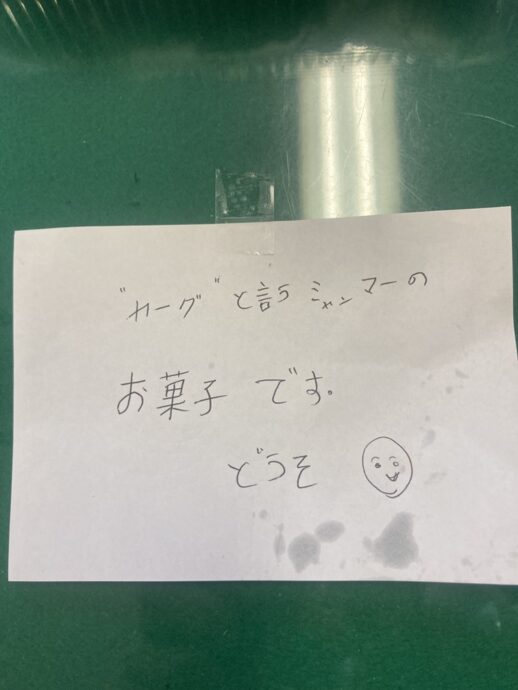 "カーグ"と言う ミャンマーの
お菓子 です。
どうそ